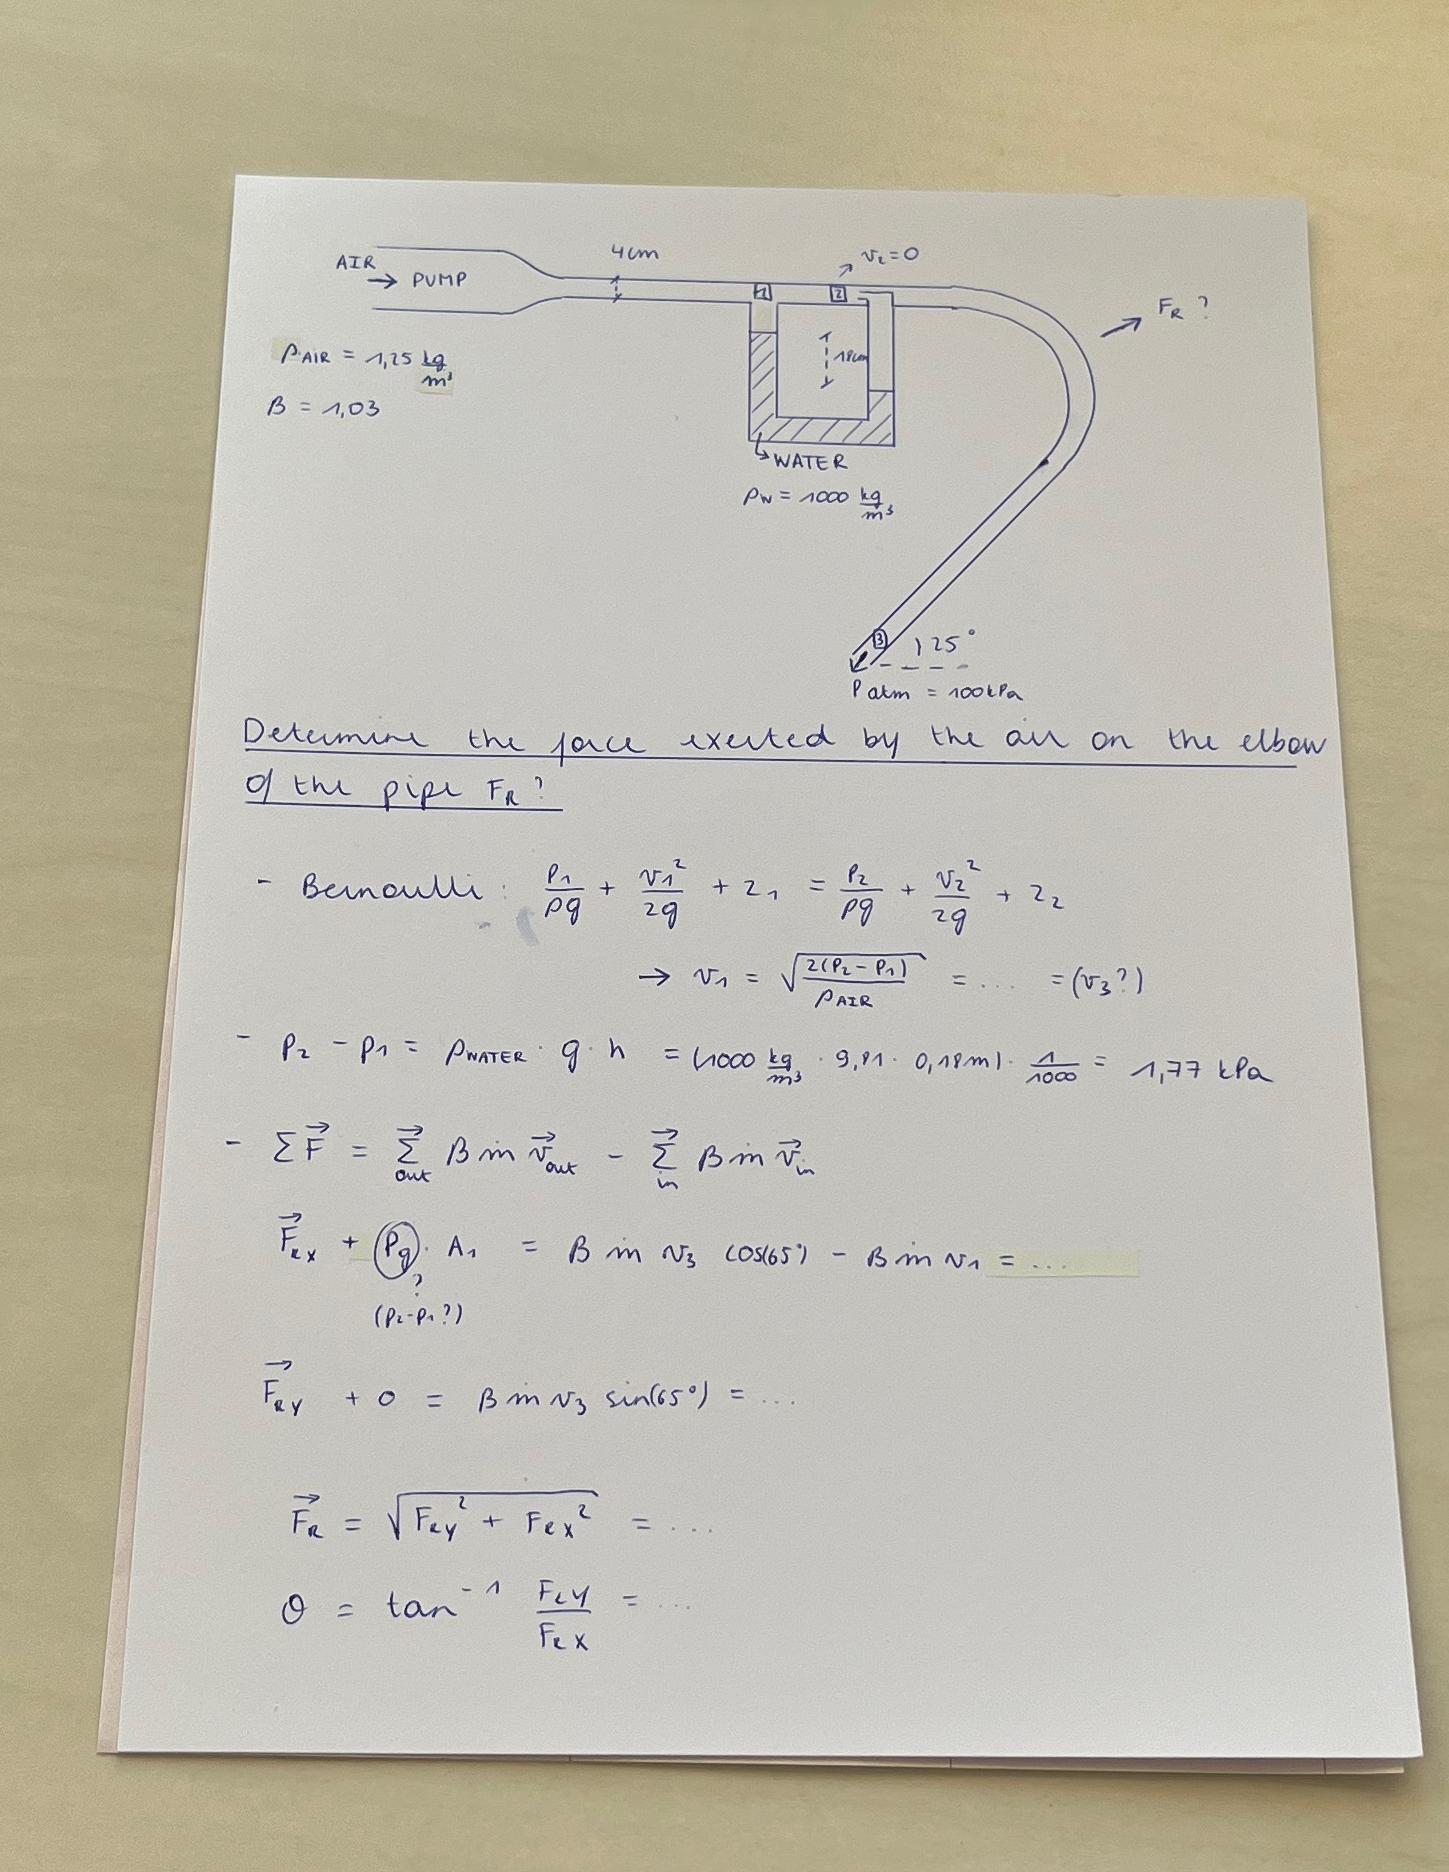 4cm
v₂=0
AIR → PUMP
1
2
F_R ?
ρ_AIR = 1,25 kg/m³
18cm
β = 1,03
WATER
ρ_W = 1000 kg/m³
3
25°
P atm = 100kPa
Determine the force exerted by the air on the elbow
of the pipe F_R?
- Bernoulli : P₁/ρg + v₁²/2g + z₁ = P₂/ρg + v₂²/2g + z₂
→ v₁ = √(2(P₂-P₁)/ρ_AIR) = ... = (v₃?)
- P₂ - P₁ = ρ_WATER · g · h = (1000 kg/m³ · 9,81 · 0,18m) · 1/1000 = 1,77 kPa
- ΣF⃗ = Σ⃗_out β ṁ v⃗_out - Σ⃗_in β ṁ v⃗_in
F⃗_RX + P_g · A₁ = β ṁ v₃ cos(65°) - β ṁ v₁ = ...
?
(P₂-P₁?)
F⃗_RY + 0 = β ṁ v₃ sin(65°) = ...
F⃗_R = √(F_RY² + F_RX²) = ...
θ = tan⁻¹ F_RY/F_RX = ...